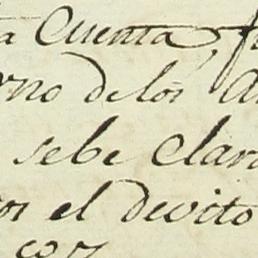 ta Cuenta, fr
rno de los A
sebe clara
os el devito